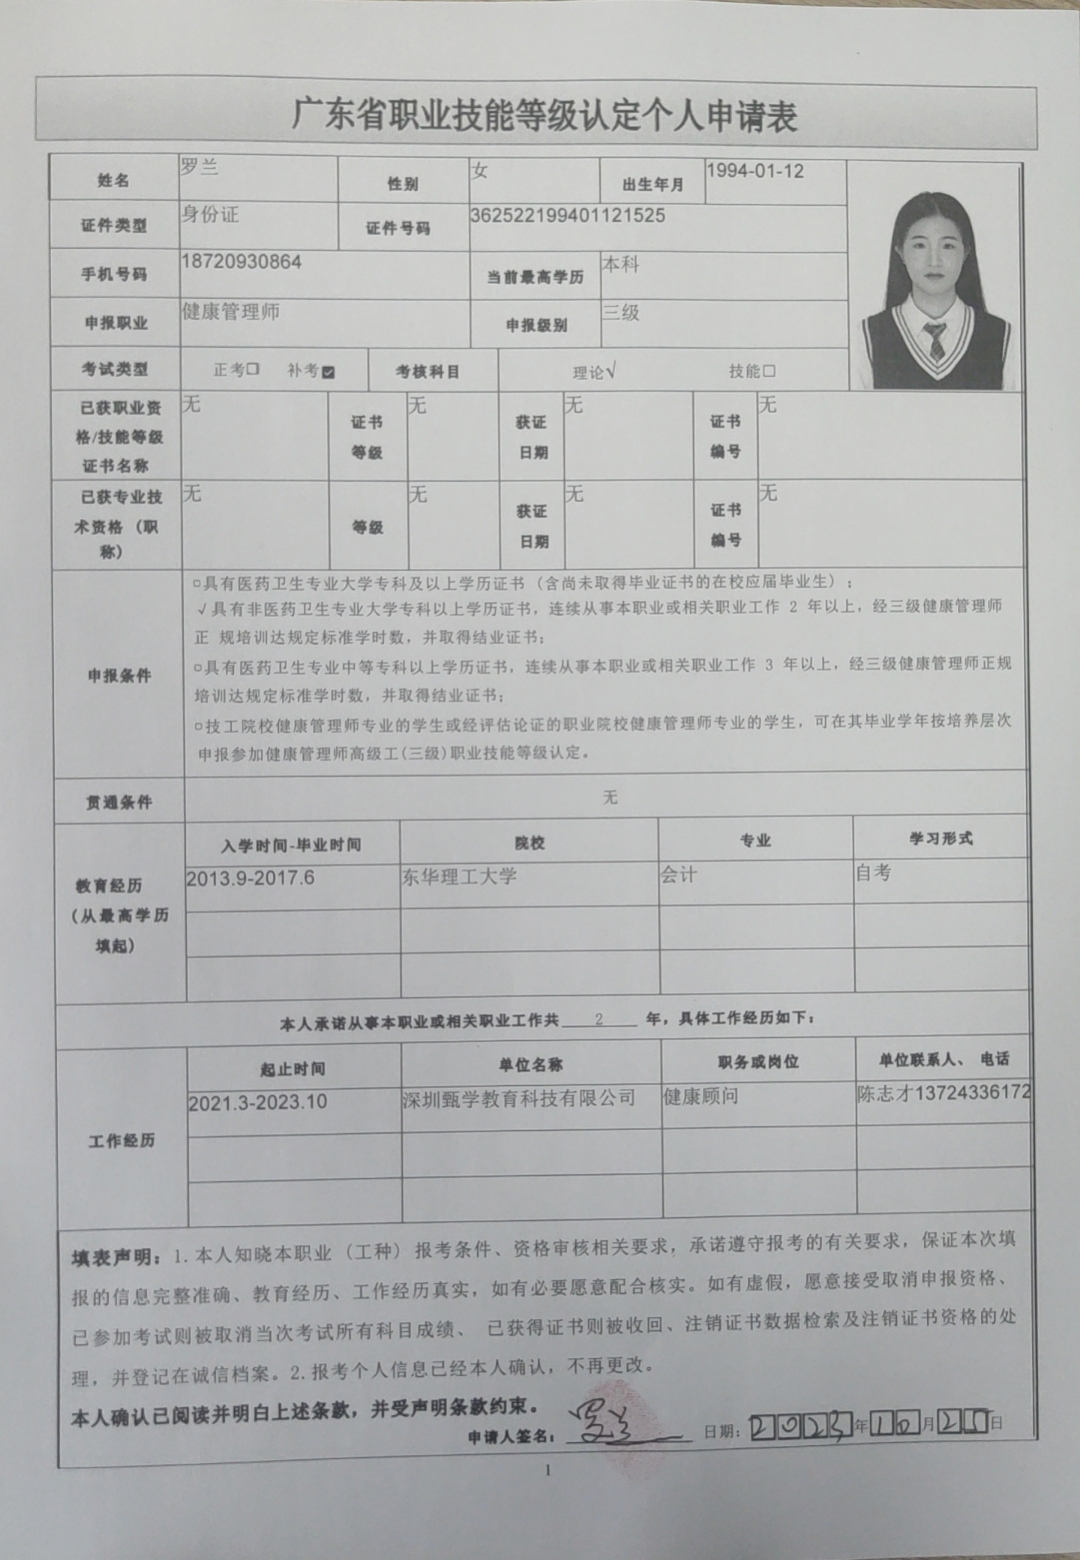 广东省职业技能等级认定个人申请表
姓名 罗兰 性别 女 出生年月 1994-01-12
证件类型 身份证 证件号码 362522199401121525
手机号码 18720930864 当前最高学历 本科
申报职业 健康管理师 申报级别 三级
考试类型 正考□ 补考☑ 考核科目 理论√ 技能□
已获职业资格/技能等级证书名称 无 证书等级 无 获证日期 无 证书编号 无
已获专业技术资格（职称） 无 等级 无 获证日期 无 证书编号 无
申报条件
□具有医药卫生专业大学专科及以上学历证书（含尚未取得毕业证书的在校应届毕业生）；
√具有非医药卫生专业大学专科以上学历证书，连续从事本职业或相关职业工作 2 年以上，经三级健康管理师
正 规培训达规定标准学时数，并取得结业证书；
□具有医药卫生专业中等专科以上学历证书，连续从事本职业或相关职业工作 3 年以上，经三级健康管理师正规
培训达规定标准学时数，并取得结业证书；
□技工院校健康管理师专业的学生或经评估论证的职业院校健康管理师专业的学生，可在其毕业学年按培养层次
申报参加健康管理师高级工(三级)职业技能等级认定。
贯通条件 无
教育经历（从最高学历填起）
入学时间-毕业时间 院校 专业 学习形式
2013.9-2017.6 东华理工大学 会计 自考
本人承诺从事本职业或相关职业工作共 2 年，具体工作经历如下：
工作经历
起止时间 单位名称 职务或岗位 单位联系人、 电话
2021.3-2023.10 深圳甄学教育科技有限公司 健康顾问 陈志才13724336172
填表声明：1.本人知晓本职业（工种）报考条件、资格审核相关要求，承诺遵守报考的有关要求，保证本次填
报的信息完整准确、教育经历、工作经历真实，如有必要愿意配合核实。如有虚假，愿意接受取消申报资格、
已参加考试则被取消当次考试所有科目成绩、 已获得证书则被收回、注销证书数据检索及注销证书资格的处
理，并登记在诚信档案。2.报考个人信息已经本人确认，不再更改。
本人确认已阅读并明白上述条款，并受声明条款约束。
申请人签名：罗兰 日期：2023年10月25日
1